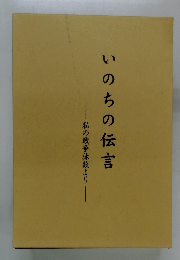 いのちの伝言
――私の戦争体験より――